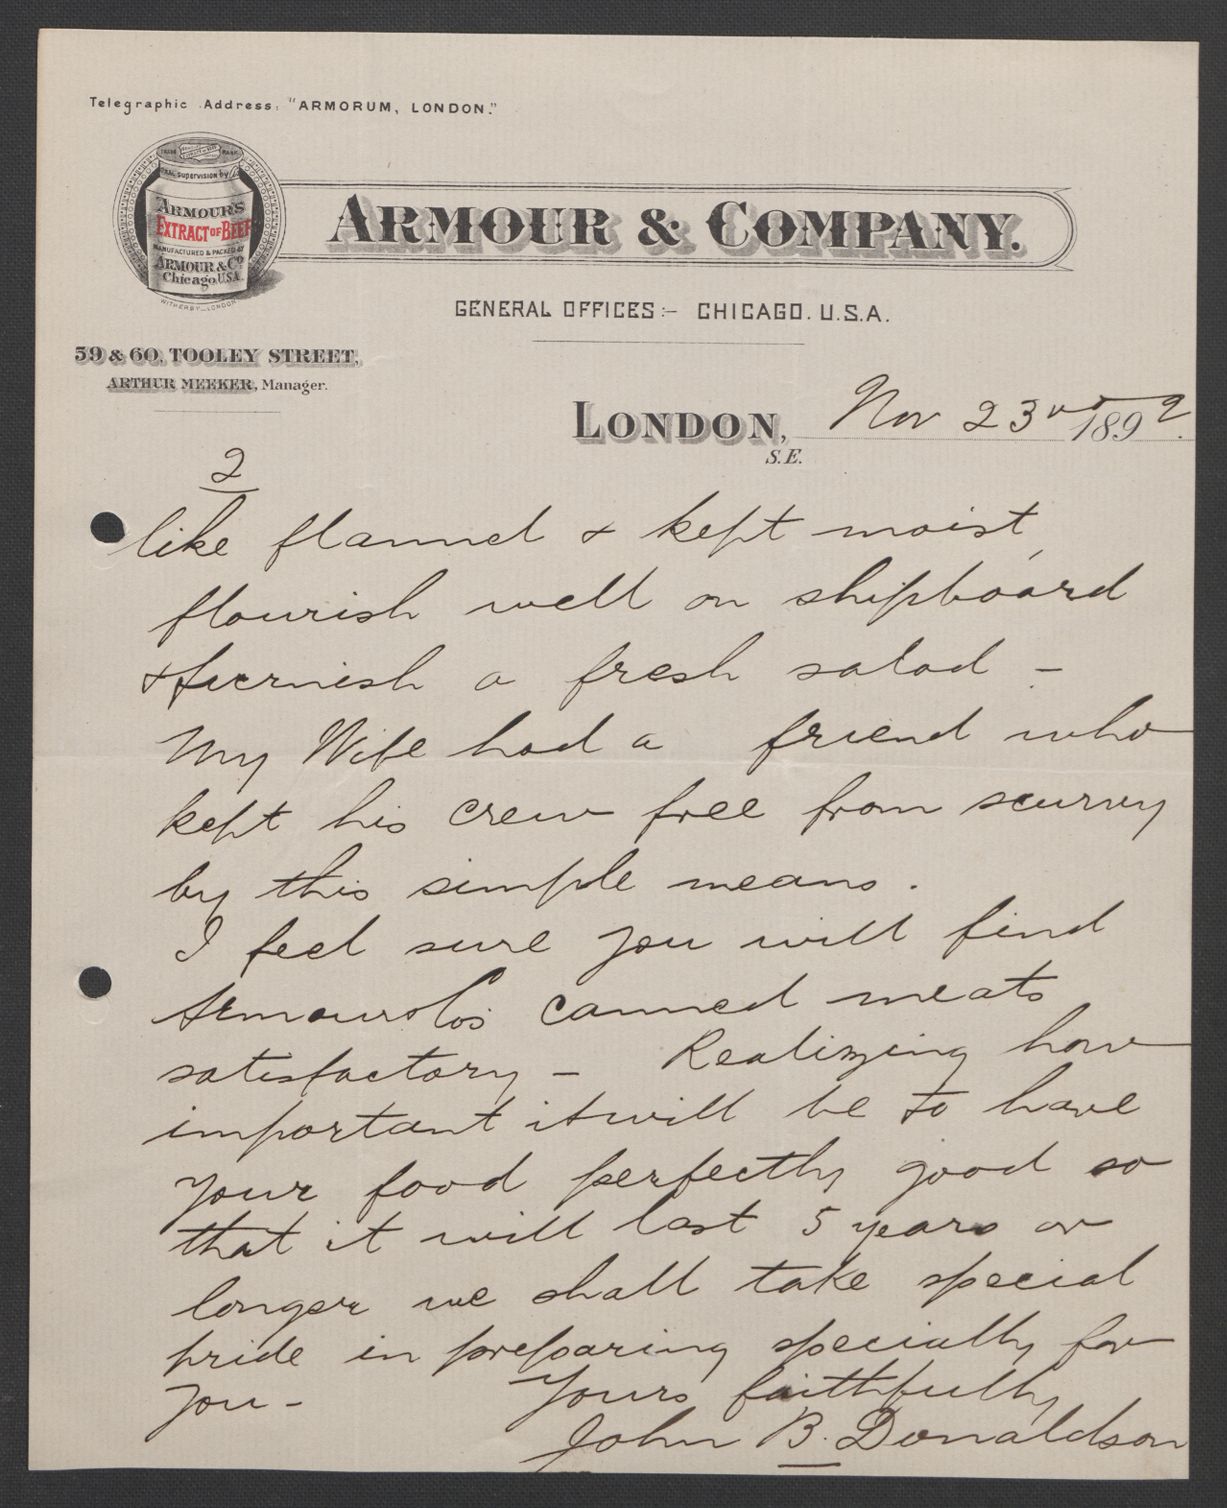 Telegraphic Address: "ARMORUM, LONDON."
TRADE MARK
supervision by
ARMOUR'S
EXTRACT OF BEEF
MANUFACTURED & PACKED BY
ARMOUR & Co
Chicago, U.S.A.
WITHERBY—LONDON
ARMOUR & COMPANY.
GENERAL OFFICES:— CHICAGO. U.S.A.
59 & 60, TOOLEY STREET,
ARTHUR MEEKER, Manager.
LONDON, Nov 23rd 1892.
S.E.
2
like flannel & kept moist,
flourish well on shipboard
& furnish a fresh salad —
My Wife had a friend who
kept his crew free from scurvy
by this simple means.
I feel sure you will find
Armour & Co's canned meats
satisfactory — Realizing how
important it will be to have
your food perfectly good so
that it will last 5 years or
longer we shall take special
pride in preparing specially for
you — Yours faithfully
John B. Donaldson